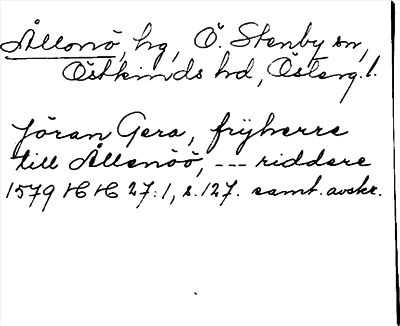 Ållonö, hg, Ö. Stenby sn,
Östkinds hd, Österg. l.
Jöran Gera, frijherre
till Ållenöö, --- riddere
1579 HH 27:1, s. 127. samt. avskr.